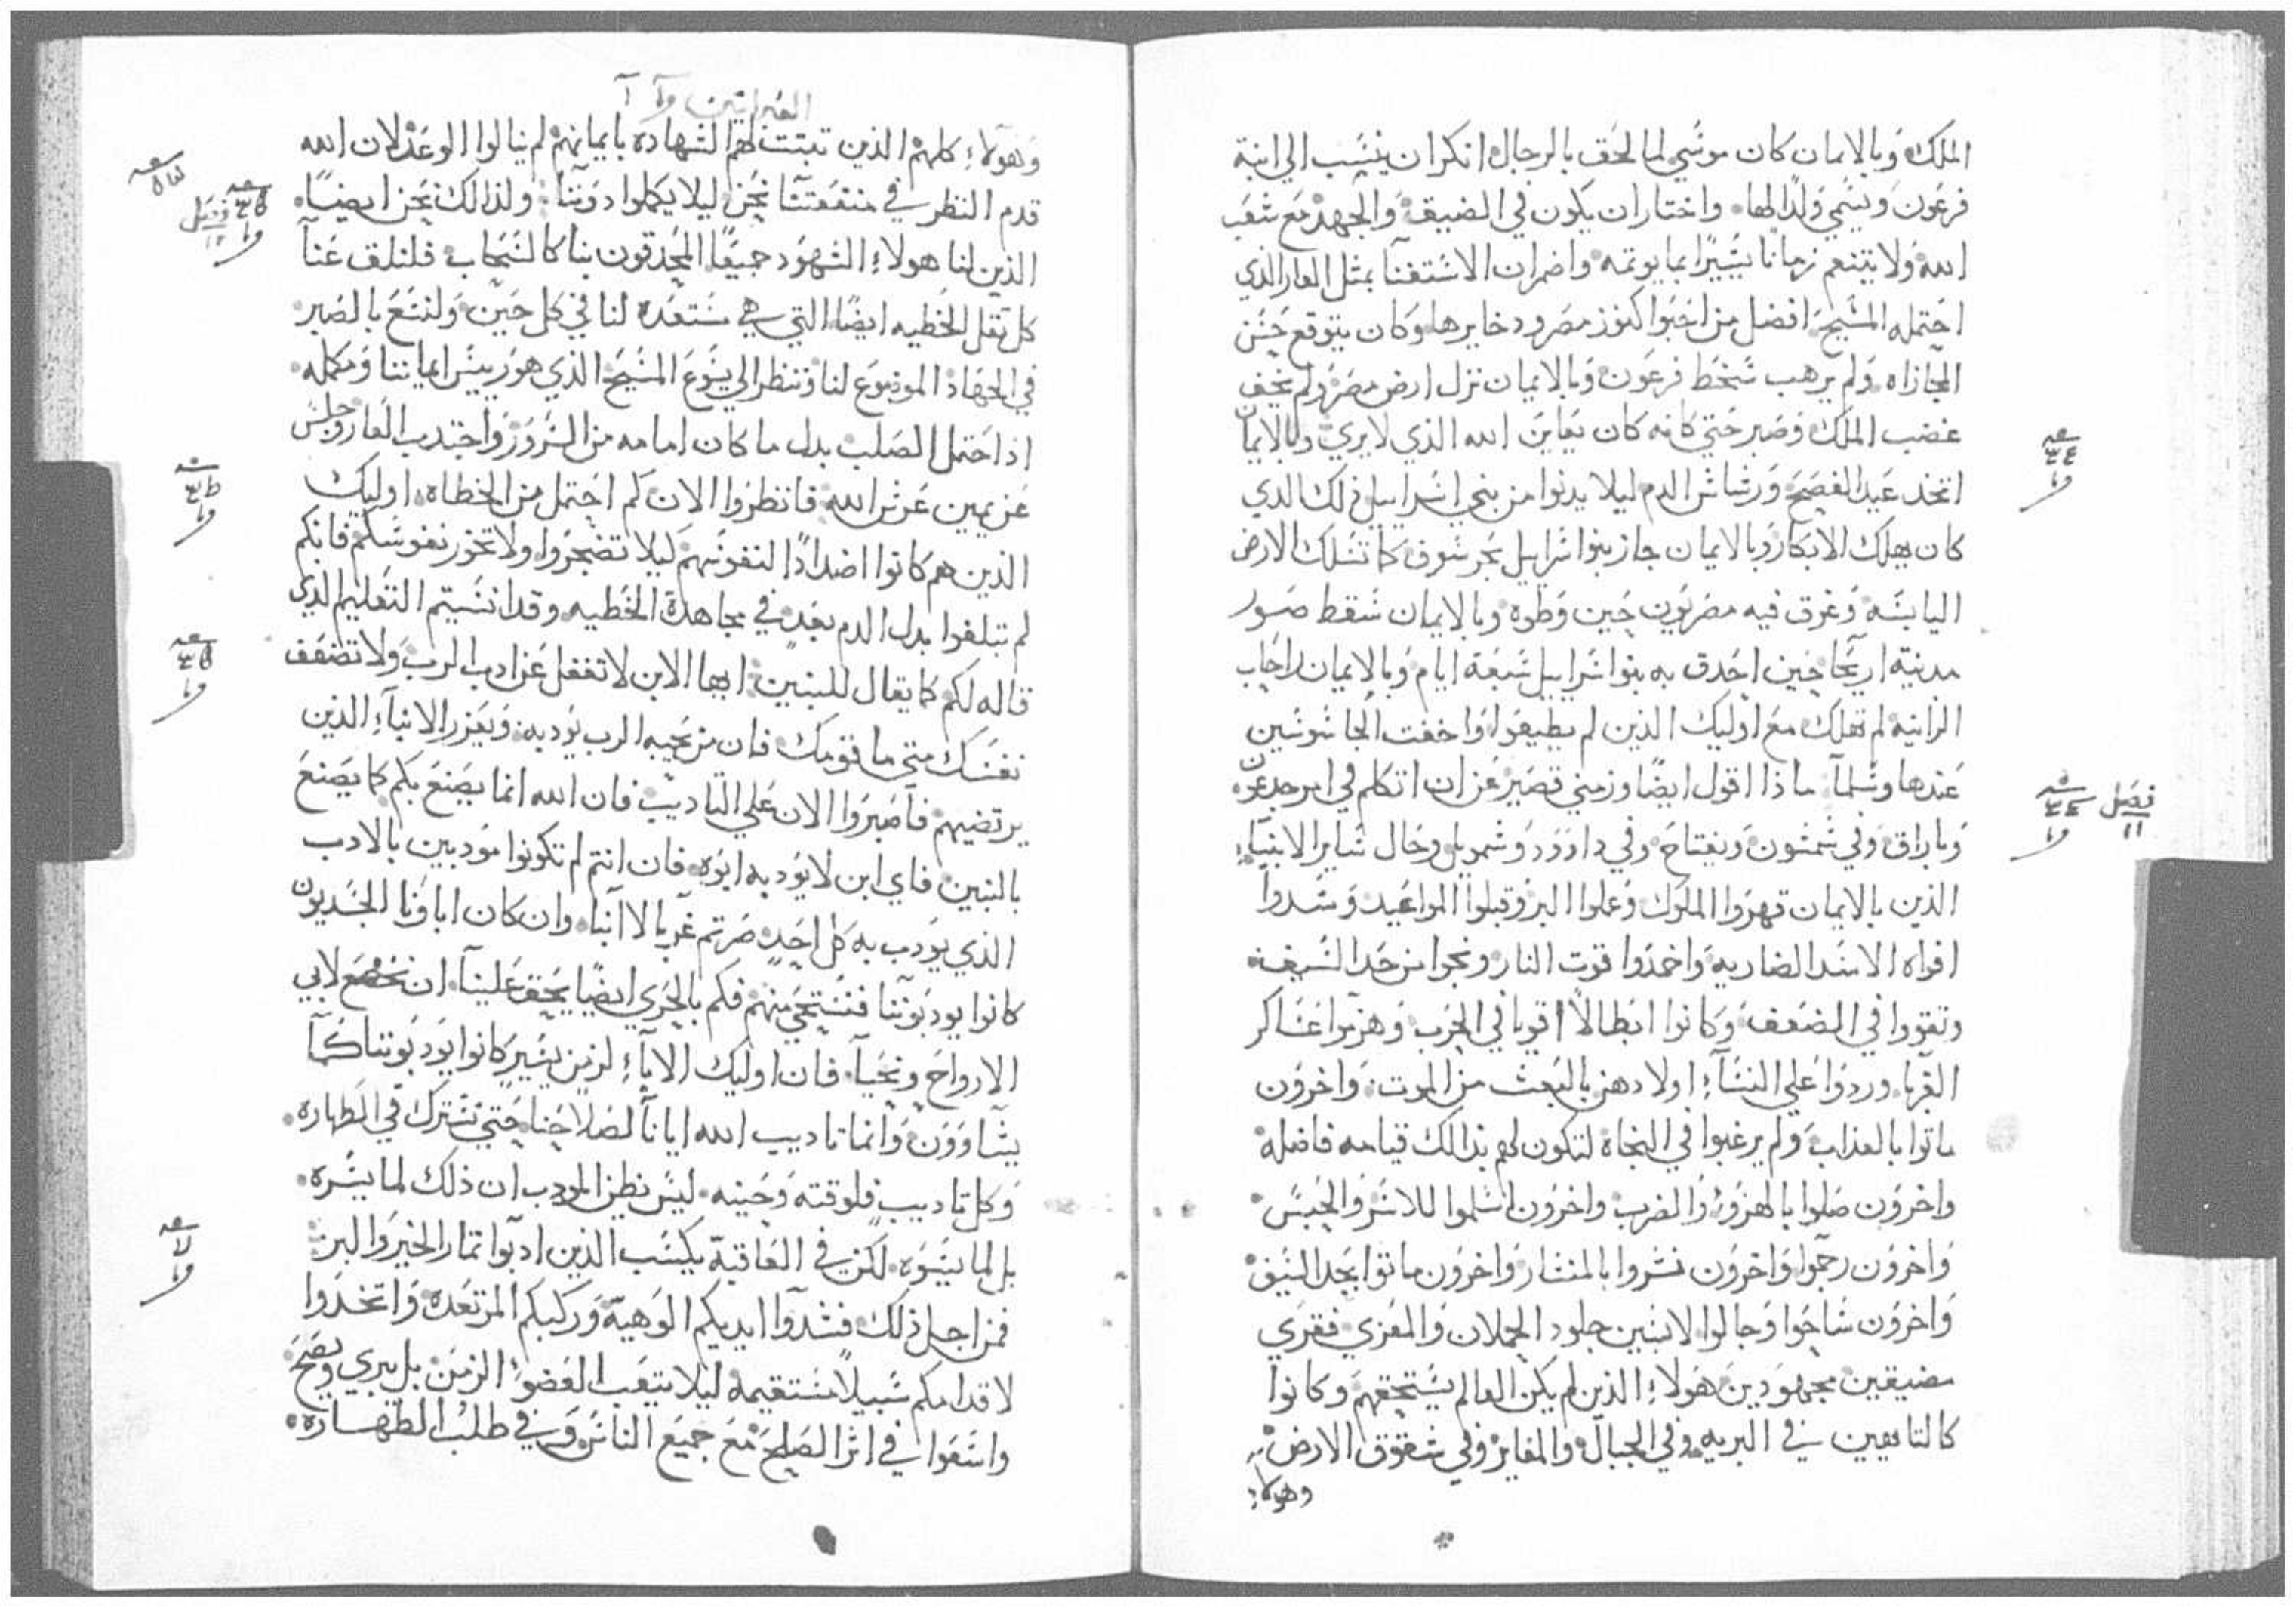 الملك وبالايمان كان موسي لما لحق بالرجال انكر ان ينسب الي ابنة
فرعون ويسمي ولدا لها واختار ان يكون في الضيق والجهد مع شعب
الله ولا يتنعم زمانا يسيرا بما يوتمه واضمر ان الاستغنا بمثل العار الذي
احتمله المسيح افضل من احتوا كنوز مصر ودخايرها وكان يتوقع حسن
المجازاه ولم يرهب سخط فرعون وبالايمان نزل ارض مصر ولم يخف
غضب الملك وصبر حتي كانه كان يعاين الله الذي لا يري وبالايمان
اتخد عيد الفصح ورشاش الدم ليلا يدنوا من بني اسراييل ذلك الدي
كان يهلك الابكار وبالايمان جاز بنوا اسراييل بحر سوف كما تسلك الارض
اليابسه وغرق فيه مصريون حين وطوه وبالايمان سقط صور
مدينة اريحا حين احدق به بنوا سراييل سبعة ايام وبالايمان راحاب
الزانية لم تهلك مع اوليك الذين لم يطيعوا واخفت الجاسوسين
عندها وسلما ماذا اقول ايضا وزمني قصير عن ان اتكلم في امر جدعون
وباراق وفي شمشون ويفتاح وفي داوود وشمويل وحال ساير الانبياء
الذين بالايمان قهروا الملوك وعملوا البر وقبلوا المواعيد وسدوا
افواه الاسد الضاريه واخمدوا قوت النار ونجوا من حد السيف
وتقووا في الضعف وكانوا ابطالا اقويا في الحرب وهزموا عساكر
الغربا وردوا علي النساء اولادهن بالبعث من الموت واخرون
ماتوا بالعذاب ولم يرغبوا في النجاة لتكون لهم بذالك قيامه فاضله
واخرون صلوا بالهزو والضرب واخرون اسلموا للاسر والحبس
واخرون رجموا واخرون نشروا بالمنشار واخرون ماتوا بحد السيف
واخرون ساحوا وجالوا لابسين جلود الحملان والمعزي فقري
مضيقين مجهودين هولاء الذين لم يكن العالم يستحقهم وكانوا
كالتايهين في البريه وفي الجبال والمغاير وفي شقوق الارض
وهولاء
فصل
١١
العبرانيين
وهولاء كلهم الذين تبتت لهم الشهاده بايمانهم لم ينالوا الوعد لان الله
قدم النظر في منفعتنا نحن ليلا يكملوا دوننا ولذالك نحن ايضا
الذين لنا هولاء الشهود جميعا المحدقون بنا كالسحاب فلنلق عنا
كل تقل الخطيه ايضا التي هي مستعده لنا في كل حين ولنسع بالصبر
في الجهاد الموضوع لنا وننظر الي يسوع المسيح الذي هو رييس ايماننا ومكمله
اذ احتمل الصلب بدل ما كان امامه من السرور واجتدب العار وجلس
عن يمين عرش الله فانظروا الان كم احتمل من الخطاه اوليك
الذين هم كانوا اضدادا لنفوسهم ليلا تضجروا ولا تخور نفوسكم فانكم
لم تبلغوا بدل الدم بعد في مجاهدة الخطيه وقد انسيتم التعليم الدي
قاله لكم كما يقال للبنين ايها الابن لا تغفل عن ادب الرب ولا تضعف
نفسك متي ما قومك فان من يحبه الرب يودبه ويعزر الابناء الذين
يرتضيهم فاصبروا الان علي التاديب فان الله انما يصنع بكم كما يصنع
بالبنين فاي ابن لا يودبه ابوه فان انتم لم تكونوا مودبين بالادب
الذي يودب به كل احد صرتم غربا لا ابنا وان كان اباونا الجسديون
كانوا يودبوننا فنستحي منهم فكم بالحري ايضا يحق علينا ان نخضع لابي
الارواح ونحيا فان اوليك الاباء لزمن يسير كانوا يودبوننا كما
يشاوون وانما تاديب الله ايانا لصلاحنا حتي نشترك في الطهاره
وكل تاديب فلوقته وحينه ليس نظن المودب ان ذلك لما يسره
بل لما يسوه لكن في العاقبة يكسب الذين ادبوا تمار الخير والبر
فمن اجل ذلك فشدوا ايديكم الوهية وركبكم المرتعده واتخدوا
لاقدامكم سبيلا مستقيمة ليلا يتعب العضو الزمن بل يبري ويصح
واسعوا في اثر الصلح مع جميع الناس وفي طلب الطهاره
فصل
١٢